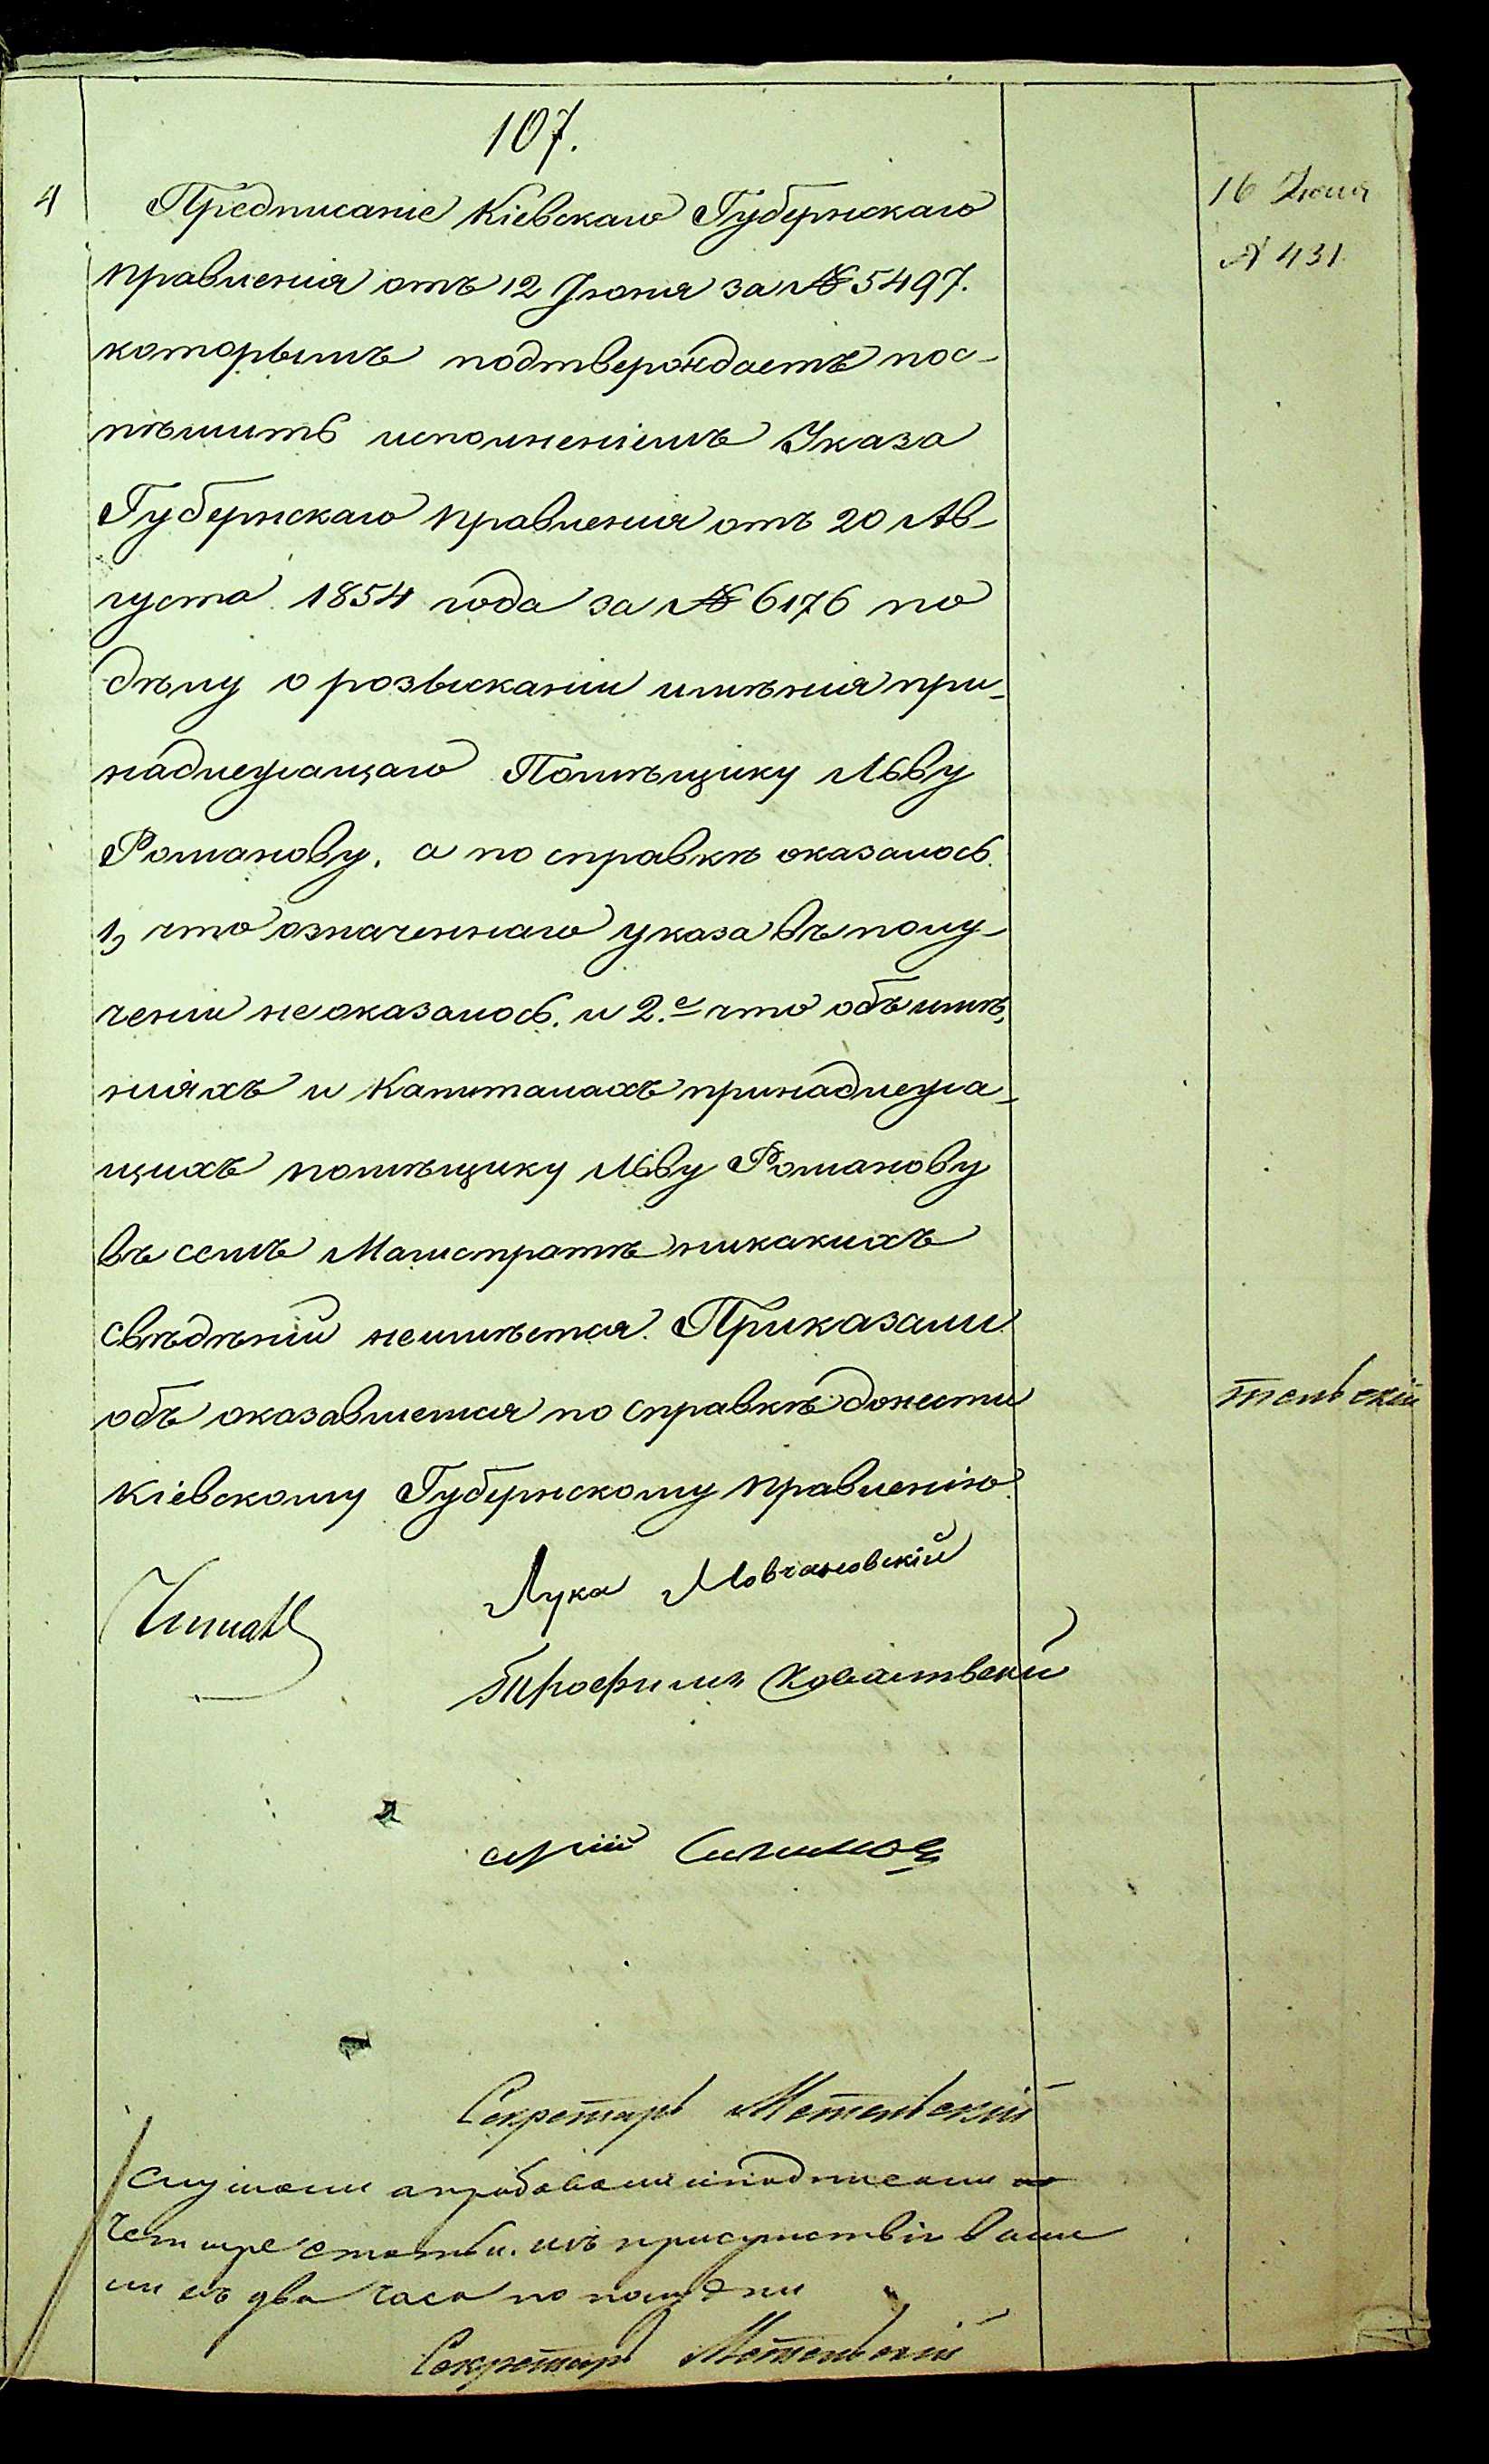 107.
4
Предписаніе Кіевскаго Губернскаго
правленія отъ 12 Іюня за № 5497.
которымъ подтверждаетъ пос-
пѣшить исполненіемъ Указа
Губернскаго правленія отъ 20 Ав-
густа 1854 года за № 6176 по
дѣлу о розысканіи имѣнія при-
надлежащаго Помѣщику Льву
Романову, а по справкѣ оказалось.
1, что означеннаго указа въ полу-
ченіи не оказалось. и 2.е что объ имѣ-
ніяхъ и Капиталахъ принадлежа-
щихъ помѣщику Льву Романову
въ семъ Магистратѣ никакихъ
свѣдѣній неимѣется. Приказали
объ оказавшемся по справкѣ донести
Кіевскому Губернскому правленію.
Лука Мовчановскій
Трофимъ
Секретарь Метельскій
Слушали апробовали и подписали
четыре статьи. изъ присутствія вышли
въ два часа по полудни
Секретарь Метельскій
16 Іюня
№ 431
тельскій